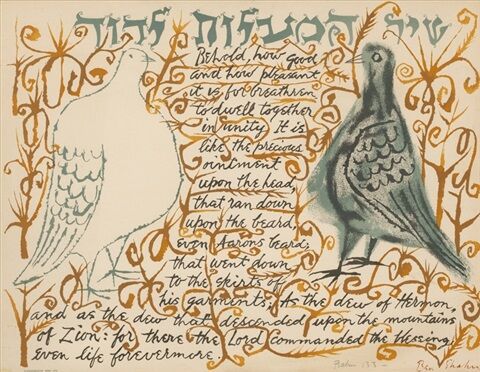 שיר המעלות לדוד
Behold, how good
and how pleasant
it is for breathren
to dwell together
in unity. It is
like the precious
ointment
upon the head,
that ran down
upon the beard,
even Aarons beard;
that went down
to the skirts of
his garments; As the dew of Hermon,
and as the dew that descended upon the mountains
of Zion: for there the Lord Commanded the blessing,
Even life forevermore.
Ben Shahn